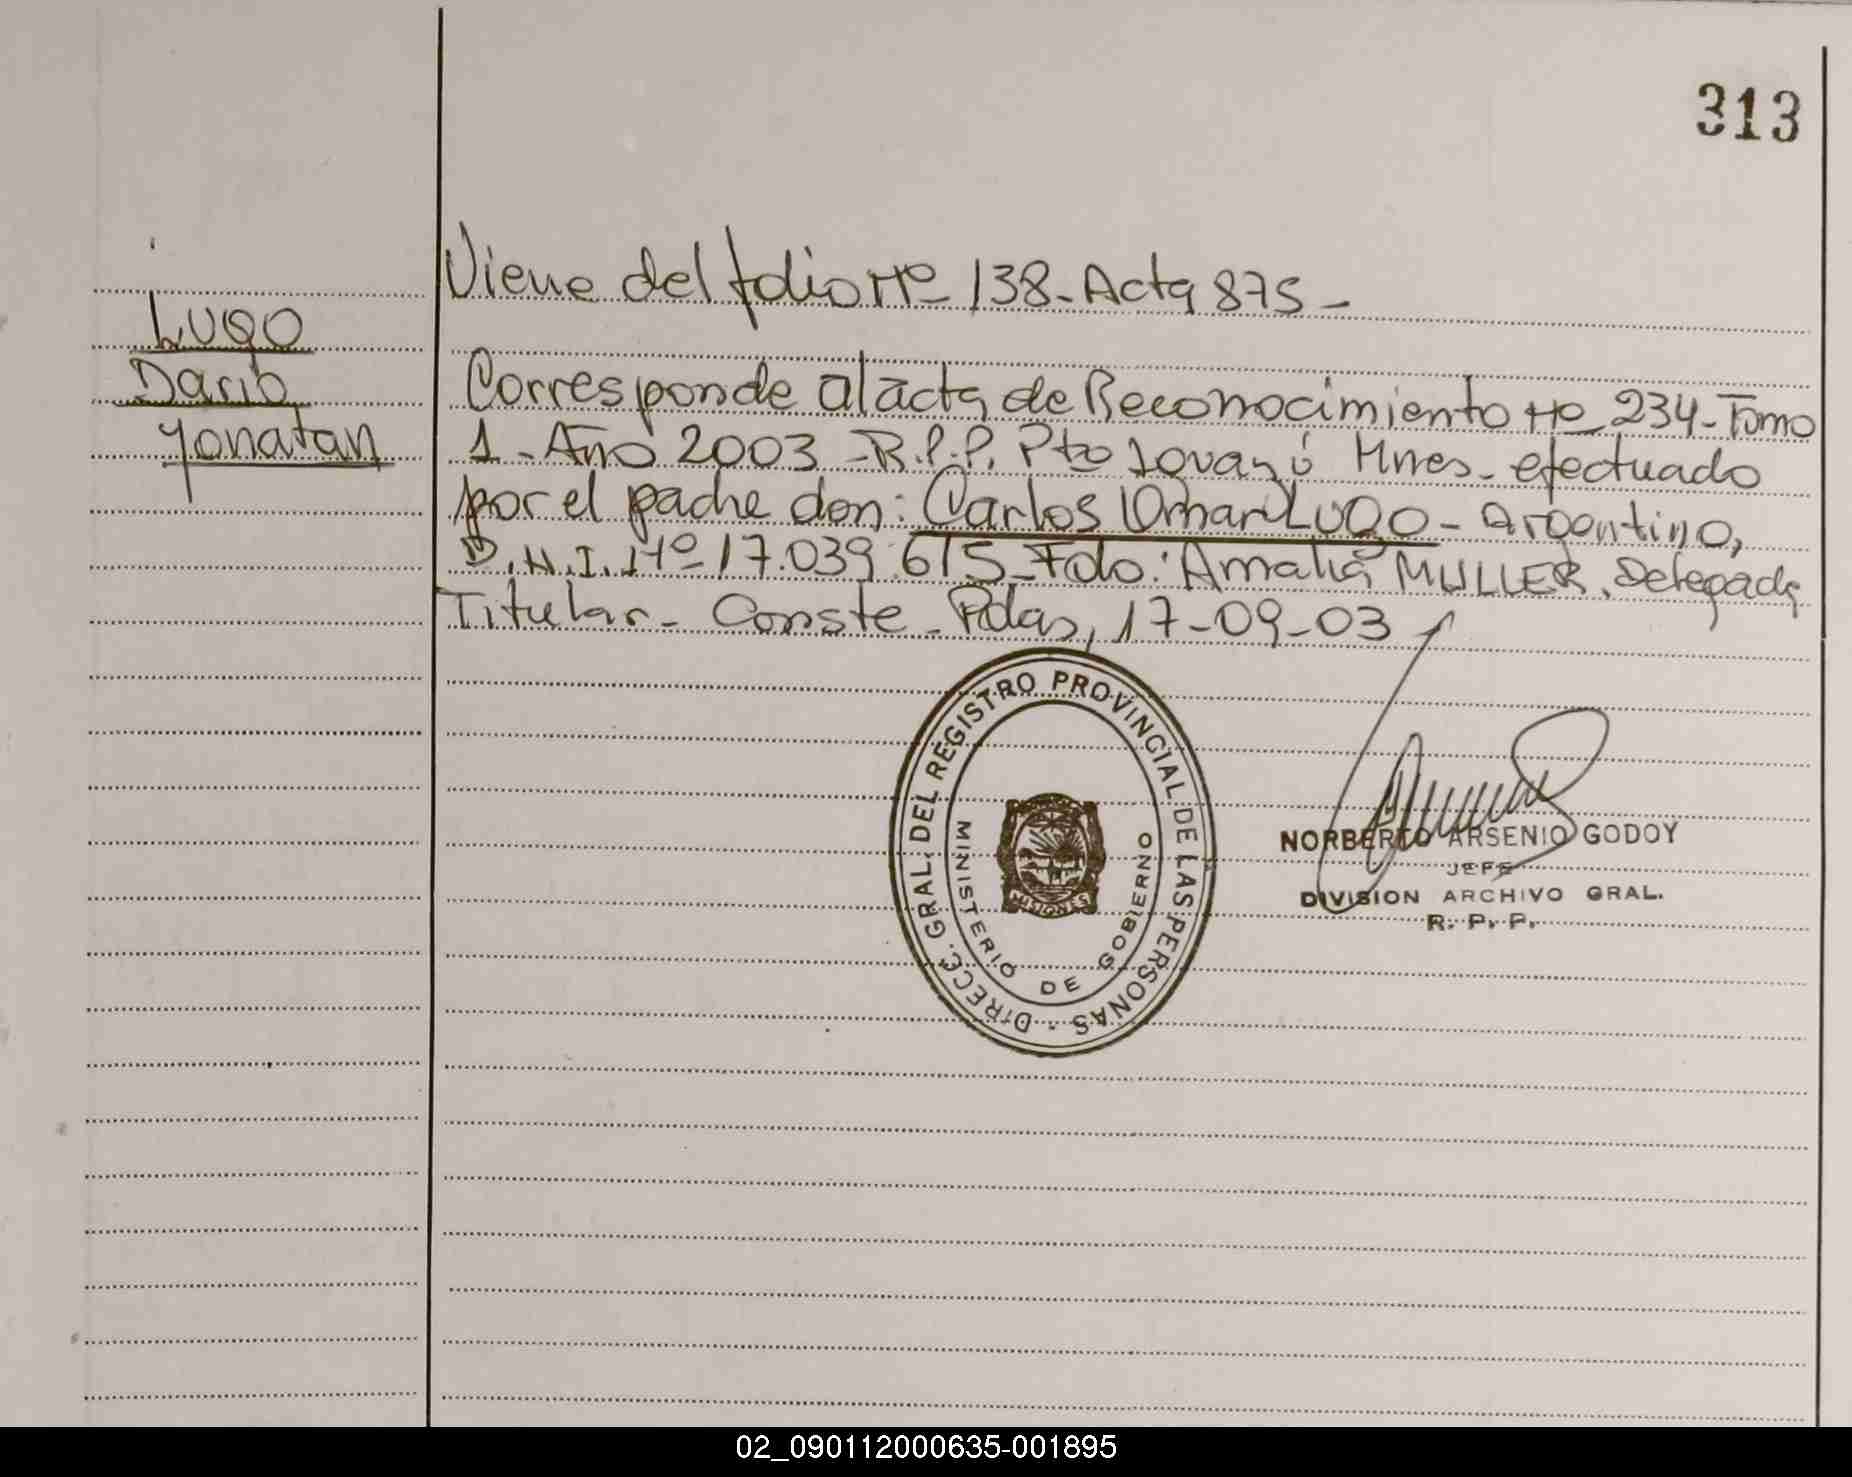 313
Viene del folio Nº 138 - Acta 875 -
LUGO
Dario
Yonatan
Corresponde al acta de Reconocimiento Nº 234 - Tomo
1 - Año 2003 - R.P.P. Pto Iguazú Mnes - efectuado
por el padre don: Carlos Omar LUGO - Argentino,
D.N.I. Nº 17.039.615 - Fdo: Amalia MULLER, Delegada
Titular - Conste - Pdas, 17-09-03
DIRECC. GRAL. DEL REGISTRO PROVINCIAL DE LAS PERSONAS
MINISTERIO DE GOBIERNO
MISIONES
NORBERTO ARSENIO GODOY
JEFE
DIVISION ARCHIVO GRAL.
R. P. P.
02_090112000635-001895